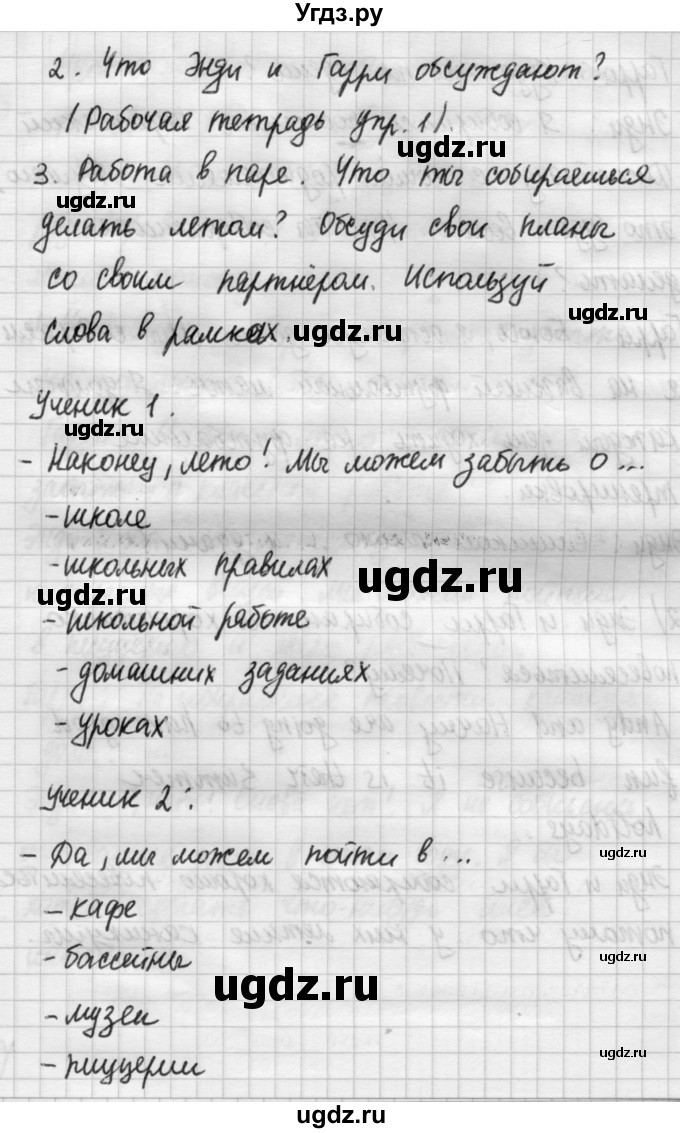 Угдз.ру
2. Что Энди и Гарри обсуждают?
/Рабочая тетрадь упр. 1).
ugdz.ru
3. Работа в паре. Что ты собираешься
ugdz.ru
делать летом? Обсуди свои планы
со своим партнёром. Используй
ugdz.ru
слова в рамках.
ugdz.ru
Ученик 1.
ugdz.ru
- Наконец, лето! Мы можем забыть о ...
- школе
- школьных правилах
ugdz.ru
ugdz.ru
- школьной работе
- домашних заданиях
- уроках
ugdz.ru
Ученик 2:
- Да, мы можем пойти в ...
ugdz.ru
- кафе
- бассейны
ugdz.ru
ugdz.ru
- музеи
- пиццерии
ugdz.ru
ugdz.ru